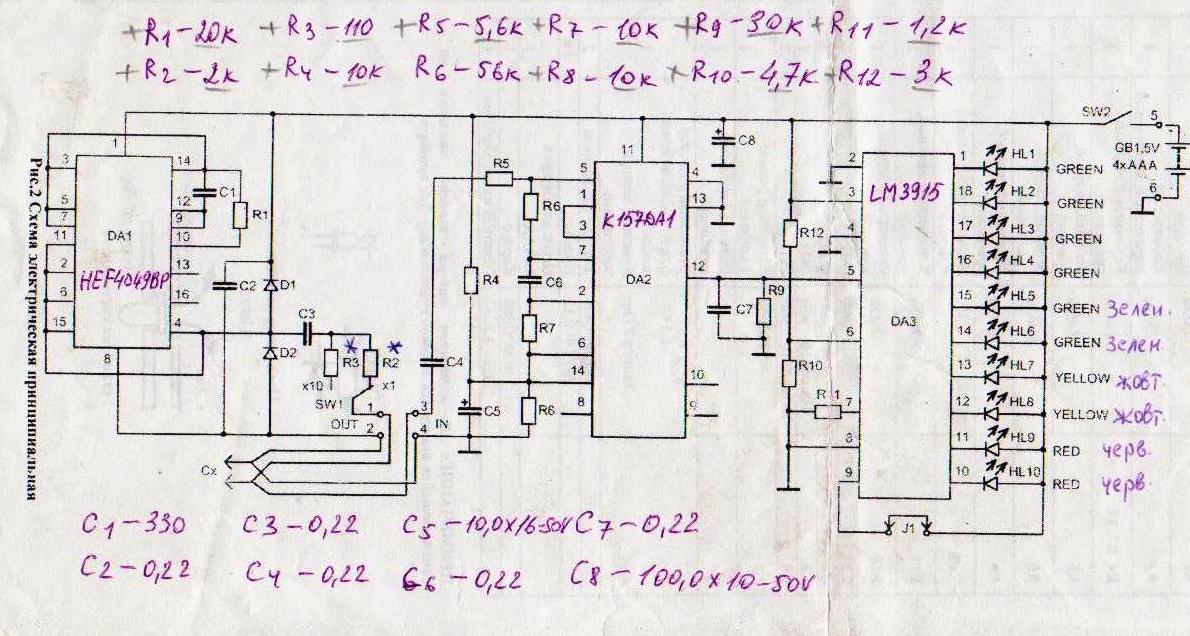 +R1-20к +R3-110 +R5-5,6к +R7-10к +R9-30к +R11-1,2к
+R2-2к +R4-10к R6-56к +R8-10к +R10-4,7к +R12-3к
Рис.2 Схема электрическая принципиальная
SW2
5
GB1,5V
4xAAA
6
1
3
5
7
11
2
6
15
8
14
12
9
10
13
16
4
DA1
HEF4049BP
C1
R1
C2
D1
D2
C3
R3
*
R2
*
x10
x1
SW1
OUT
1
2
3
4
IN
Cx
C4
R4
C5
+
R5
R6
C6
R7
R6
11
5
1
3
7
2
6
14
8
4
13
12
10
9
К157DA1
DA2
C8
+
C7
R9
R12
R10
R 1
2
3
4
5
6
7
8
9
LM3915
DA3
1 HL1 GREEN
18 HL2 GREEN
17 HL3 GREEN
16 HL4 GREEN
15 HL5 GREEN Зелен.
14 HL6 GREEN Зелен.
13 HL7 YELLOW жовт.
12 HL8 YELLOW жовт.
11 HL9 RED черв.
10 HL10 RED черв.
J1
C1-330 C3-0,22 C5-10,0x16-50V C7-0,22
C2-0,22 C4-0,22 C6-0,22 C8-100,0x10-50V